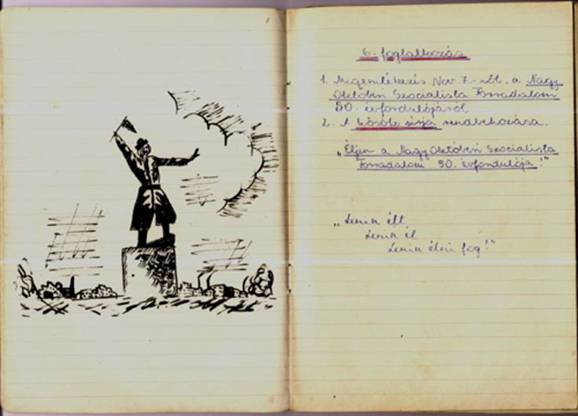 6. foglalkozás
1. Megemlékezés Nov. 7.-ről, a Nagy
Októberi Szocialista Forradalom
50. évfordulójáról.
2. A hősök sírja rendbehozása.
„Éljen a Nagy Októberi Szocialista
Forradalom 50. évfordulója!”
„Lenin élt
Lenin él
Lenin élni fog!”